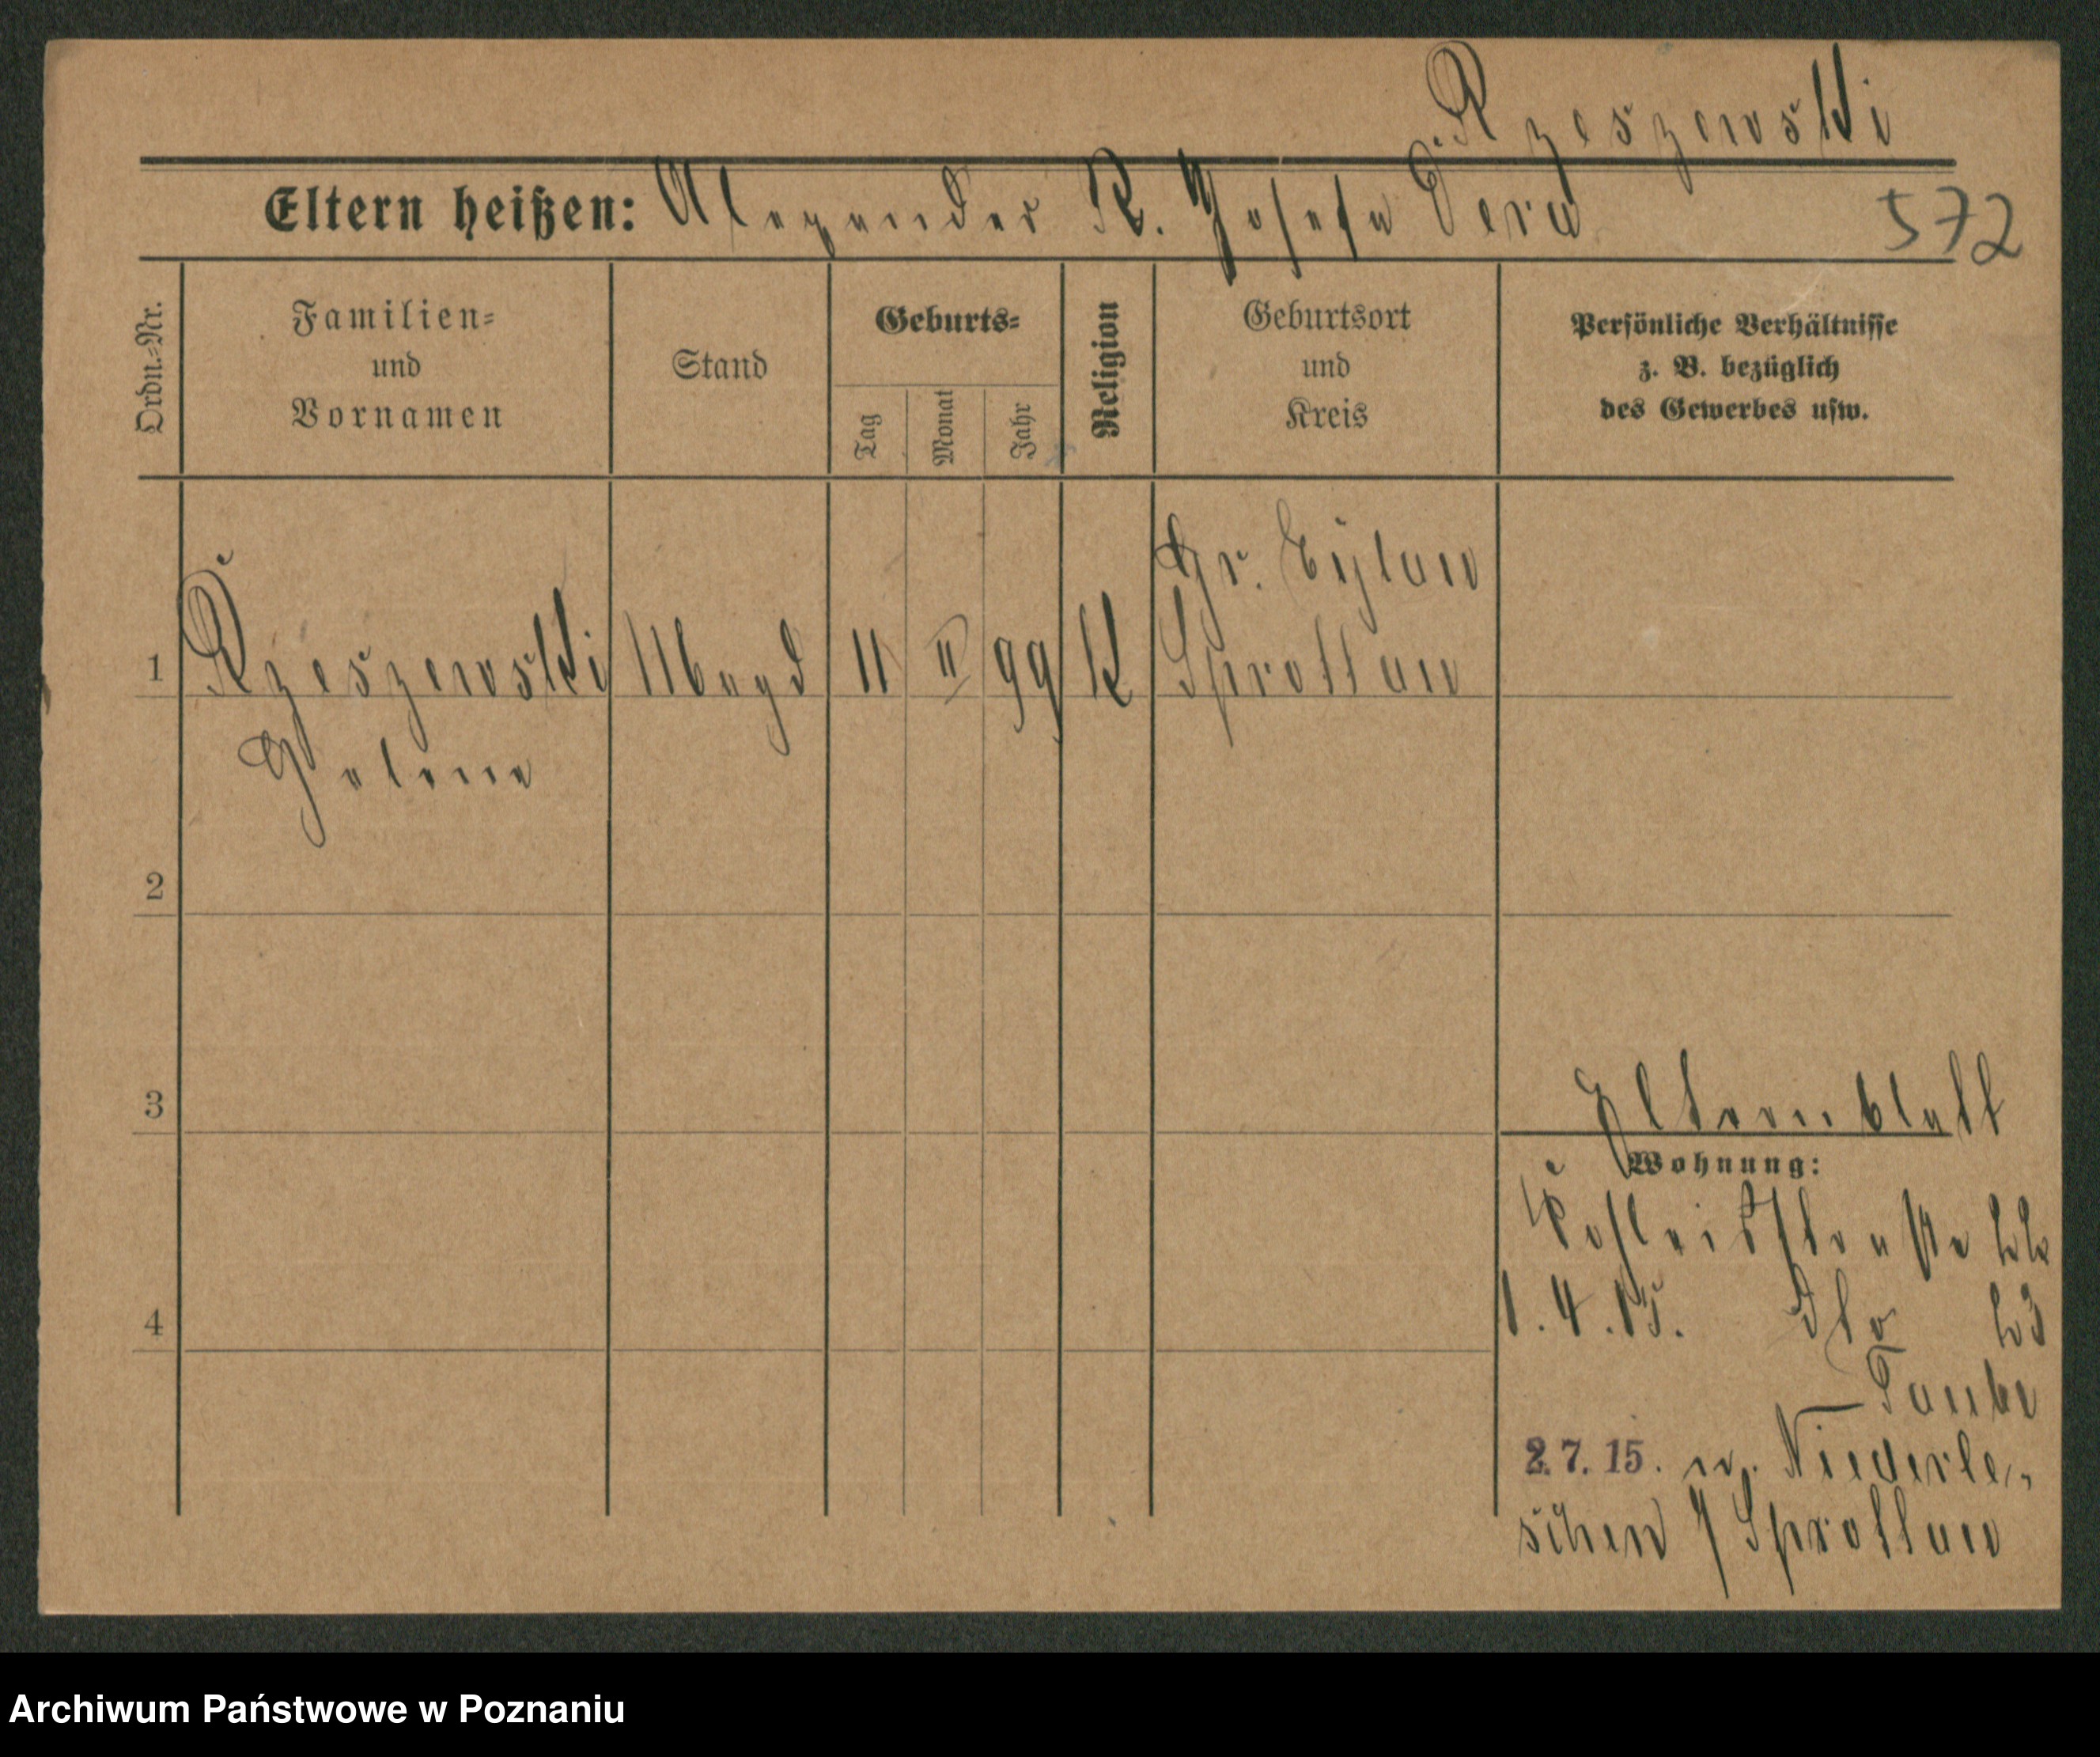 Rzeszewski
Eltern heißen: Alexander R. Josefa Dera
572
Ordn.-Nr.
Familien-
und
Vornamen
Stand
Geburts-
Tag
Monat
Jahr
Religion
Geburtsort
und
Kreis
Persönliche Verhältnisse
z. B. bezüglich
des Gewerbes usw.
Gr. Eylau
1 Rzeszewski Magd 11 II 99 K Sprottau
Helene
2
3
Elternblatt
Wohnung:
22
4
1.4.15. dto 23
Taube
2.7.15. Niederle-
schen Sprottau
Archiwum Państwowe w Poznaniu